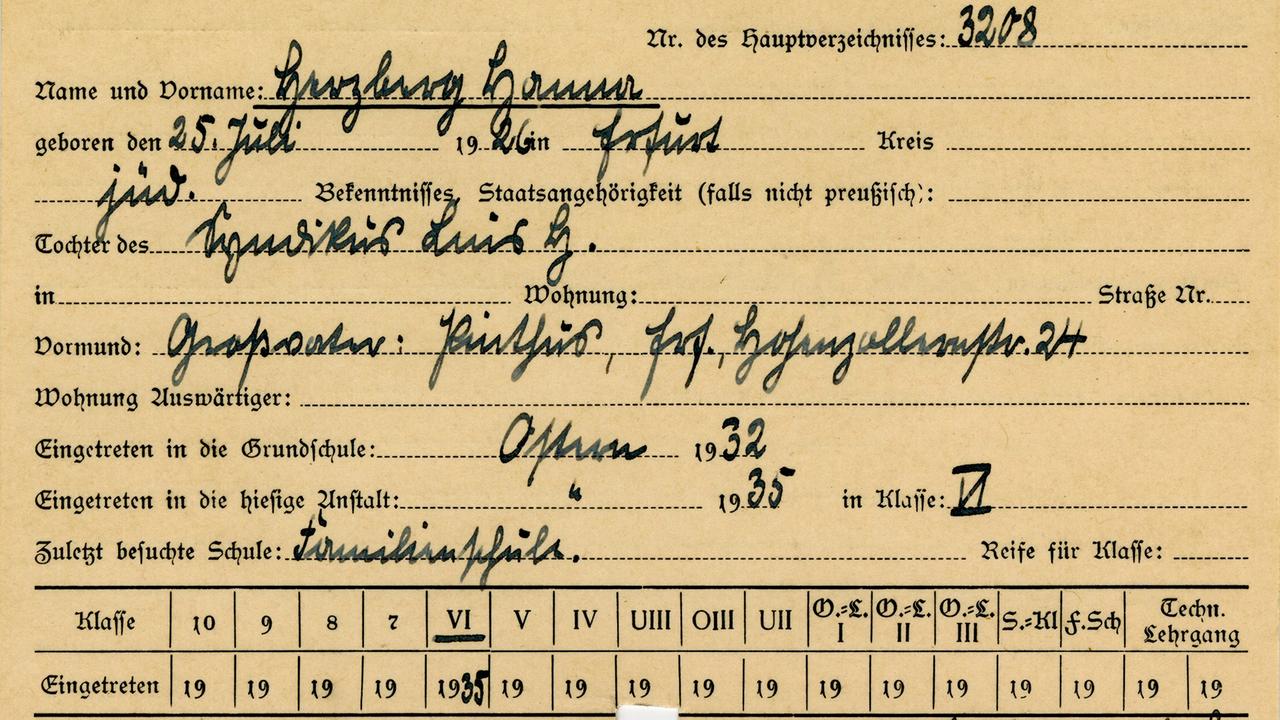 Nr. des Hauptverzeichnisses: 3208
Name und Vorname: Herzberg Hanna
geboren den 25. Juli 1926 in Erfurt Kreis
jüd. Bekenntnisses, Staatsangehörigkeit (falls nicht preußisch):
Tochter des Syndikus Luis H.
in Wohnung: Straße Nr.
Vormund: Großvater: Pinthus, Erf., Hohenzollernstr. 24
Wohnung Auswärtiger:
Eingetreten in die Grundschule: Ostern 1932
Eingetreten in die hiesige Anstalt: " 1935 in Klasse: VI
Zuletzt besuchte Schule: Familienschule. Reife für Klasse:
Klasse 10 9 8 7 VI V IV UIII OIII UII O.=L. I O.=L. II O.=L. III S.=Kl F.Sch Techn. Lehrgang
Eingetreten 19 19 19 19 1935 19 19 19 19 19 19 19 19 19 19 19 19